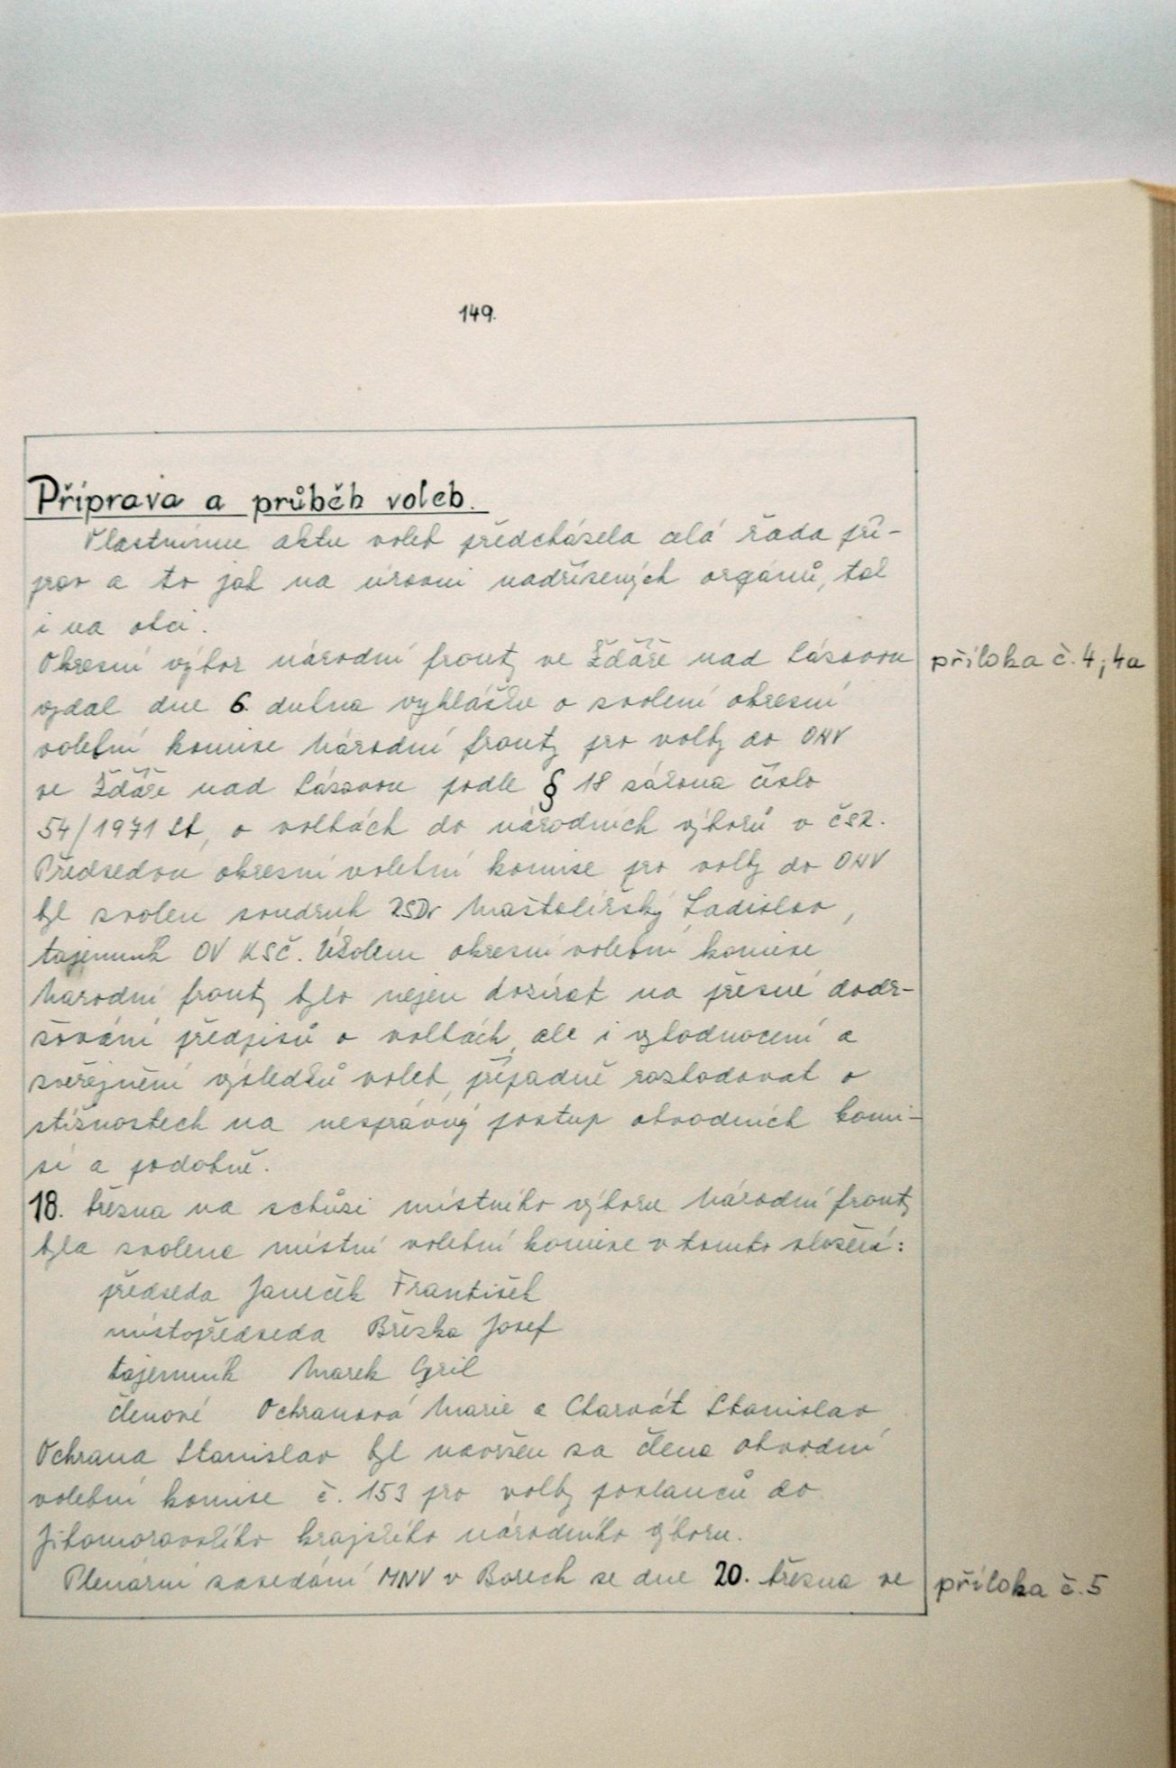 149.
Příprava a průběh voleb.
Vlastnímu aktu voleb předcházela celá řada pří-
prav a to jak na úrovni nadřízených orgánů, tak
i na obci.
Okresní výbor národní fronty ve Žďáře nad Sázavou
příloha č. 4, 4a
vydal dne 6. dubna vyhlášku o zvolení okresní
volební komise Národní fronty pro volby do ONV
ve Žďáře nad Sázavou podle § 18 zákona číslo
54/1971 Sb, o volbách do národních výborů v ČSR.
Předsedou okresní volební komise pro volby do ONV
byl zvolen soudruh RSDr Maštalířský Ladislav,
tajemník OV KSČ. Úkolem okresní volební komise
Národní fronty bylo nejen dozírat na přesné dodr-
žování předpisů o volbách, ale i vyhodnocení a
zveřejnění výsledků voleb, případně rozhodovat o
stížnostech na nesprávný postup obvodních komi-
sí a podobně.
18. března na schůzi místního výboru Národní fronty
byla zvolena místní volební komise v tomto složení:
předseda Janeček František
místopředseda Březka Josef
tajemník Marek Cyril
členové Ochranová Marie a Charvát Stanislav
Ochrana Stanislav byl navržen za člena obvodní
volební komise č. 153 pro volby poslanců do
Jihomoravského krajského národního výboru.
Plenární zasedání MNV v Borech se dne 20. března ve
příloha č. 5